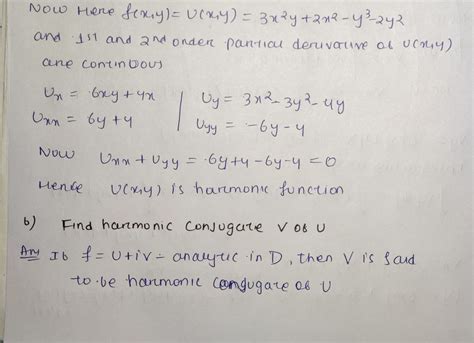 Now Here f(x,y) = U(x,y) = 3x²y + 2x² - y³ - 2y²
and 1st and 2nd order partial derivative of U(x,y)
are continuous
Ux = 6xy + 4x | Uy = 3x² - 3y² - 4y
Uxx = 6y + 4 | Uyy = -6y - 4
Now Uxx + Uyy = 6y + 4 - 6y - 4 = 0
Hence U(x,y) is harmonic function
b) Find harmonic conjugate V of U
Ans If f = U + iV = analytic in D, then V is said
to be harmonic conjugate of U